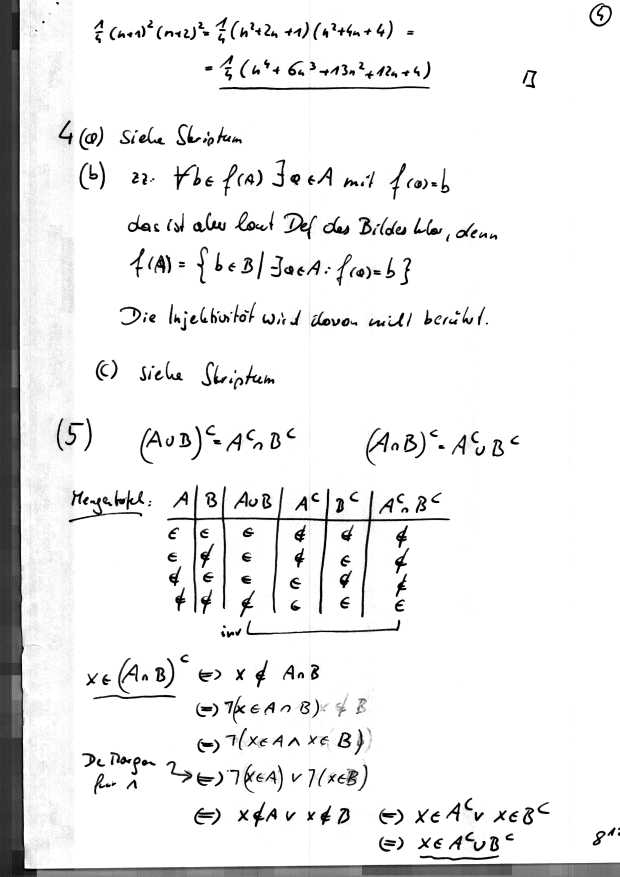 ④
¼ (n+1)² (n+2)² = ¼ (n²+2n+1)(n²+4n+4) =
= ¼ (n⁴ + 6n³ + 13n² + 12n + 4) □
4 (a) siehe Skriptum
(b) zz. ∀b∈f(A) ∃a∈A mit f(a)=b
das ist aber laut Def des Bildes klar, denn
f(A) = {b∈B | ∃a∈A: f(a)=b}
Die Injektivität wird davon nicht berührt.
(c) siehe Skriptum
(5) (A∪B)ᶜ = Aᶜ∩Bᶜ (A∩B)ᶜ = Aᶜ∪Bᶜ
Mengentafel: A | B | A∪B | Aᶜ | Bᶜ | Aᶜ∩Bᶜ
∈ | ∈ | ∈ | ∉ | ∉ | ∉
∈ | ∉ | ∈ | ∉ | ∈ | ∉
∉ | ∈ | ∈ | ∈ | ∉ | ∉
∉ | ∉ | ∉ | ∈ | ∈ | ∈
inv
x∈(A∩B)ᶜ ⇔ x ∉ A∩B
⇔ ¬(x∈A∩B)
⇔ ¬(x∈A ∧ x∈B)
De Morgan
für ∧ → ⇔ ¬(x∈A) ∨ ¬(x∈B)
⇔ x∉A ∨ x∉B ⇔ x∈Aᶜ ∨ x∈Bᶜ
⇔ x∈Aᶜ∪Bᶜ